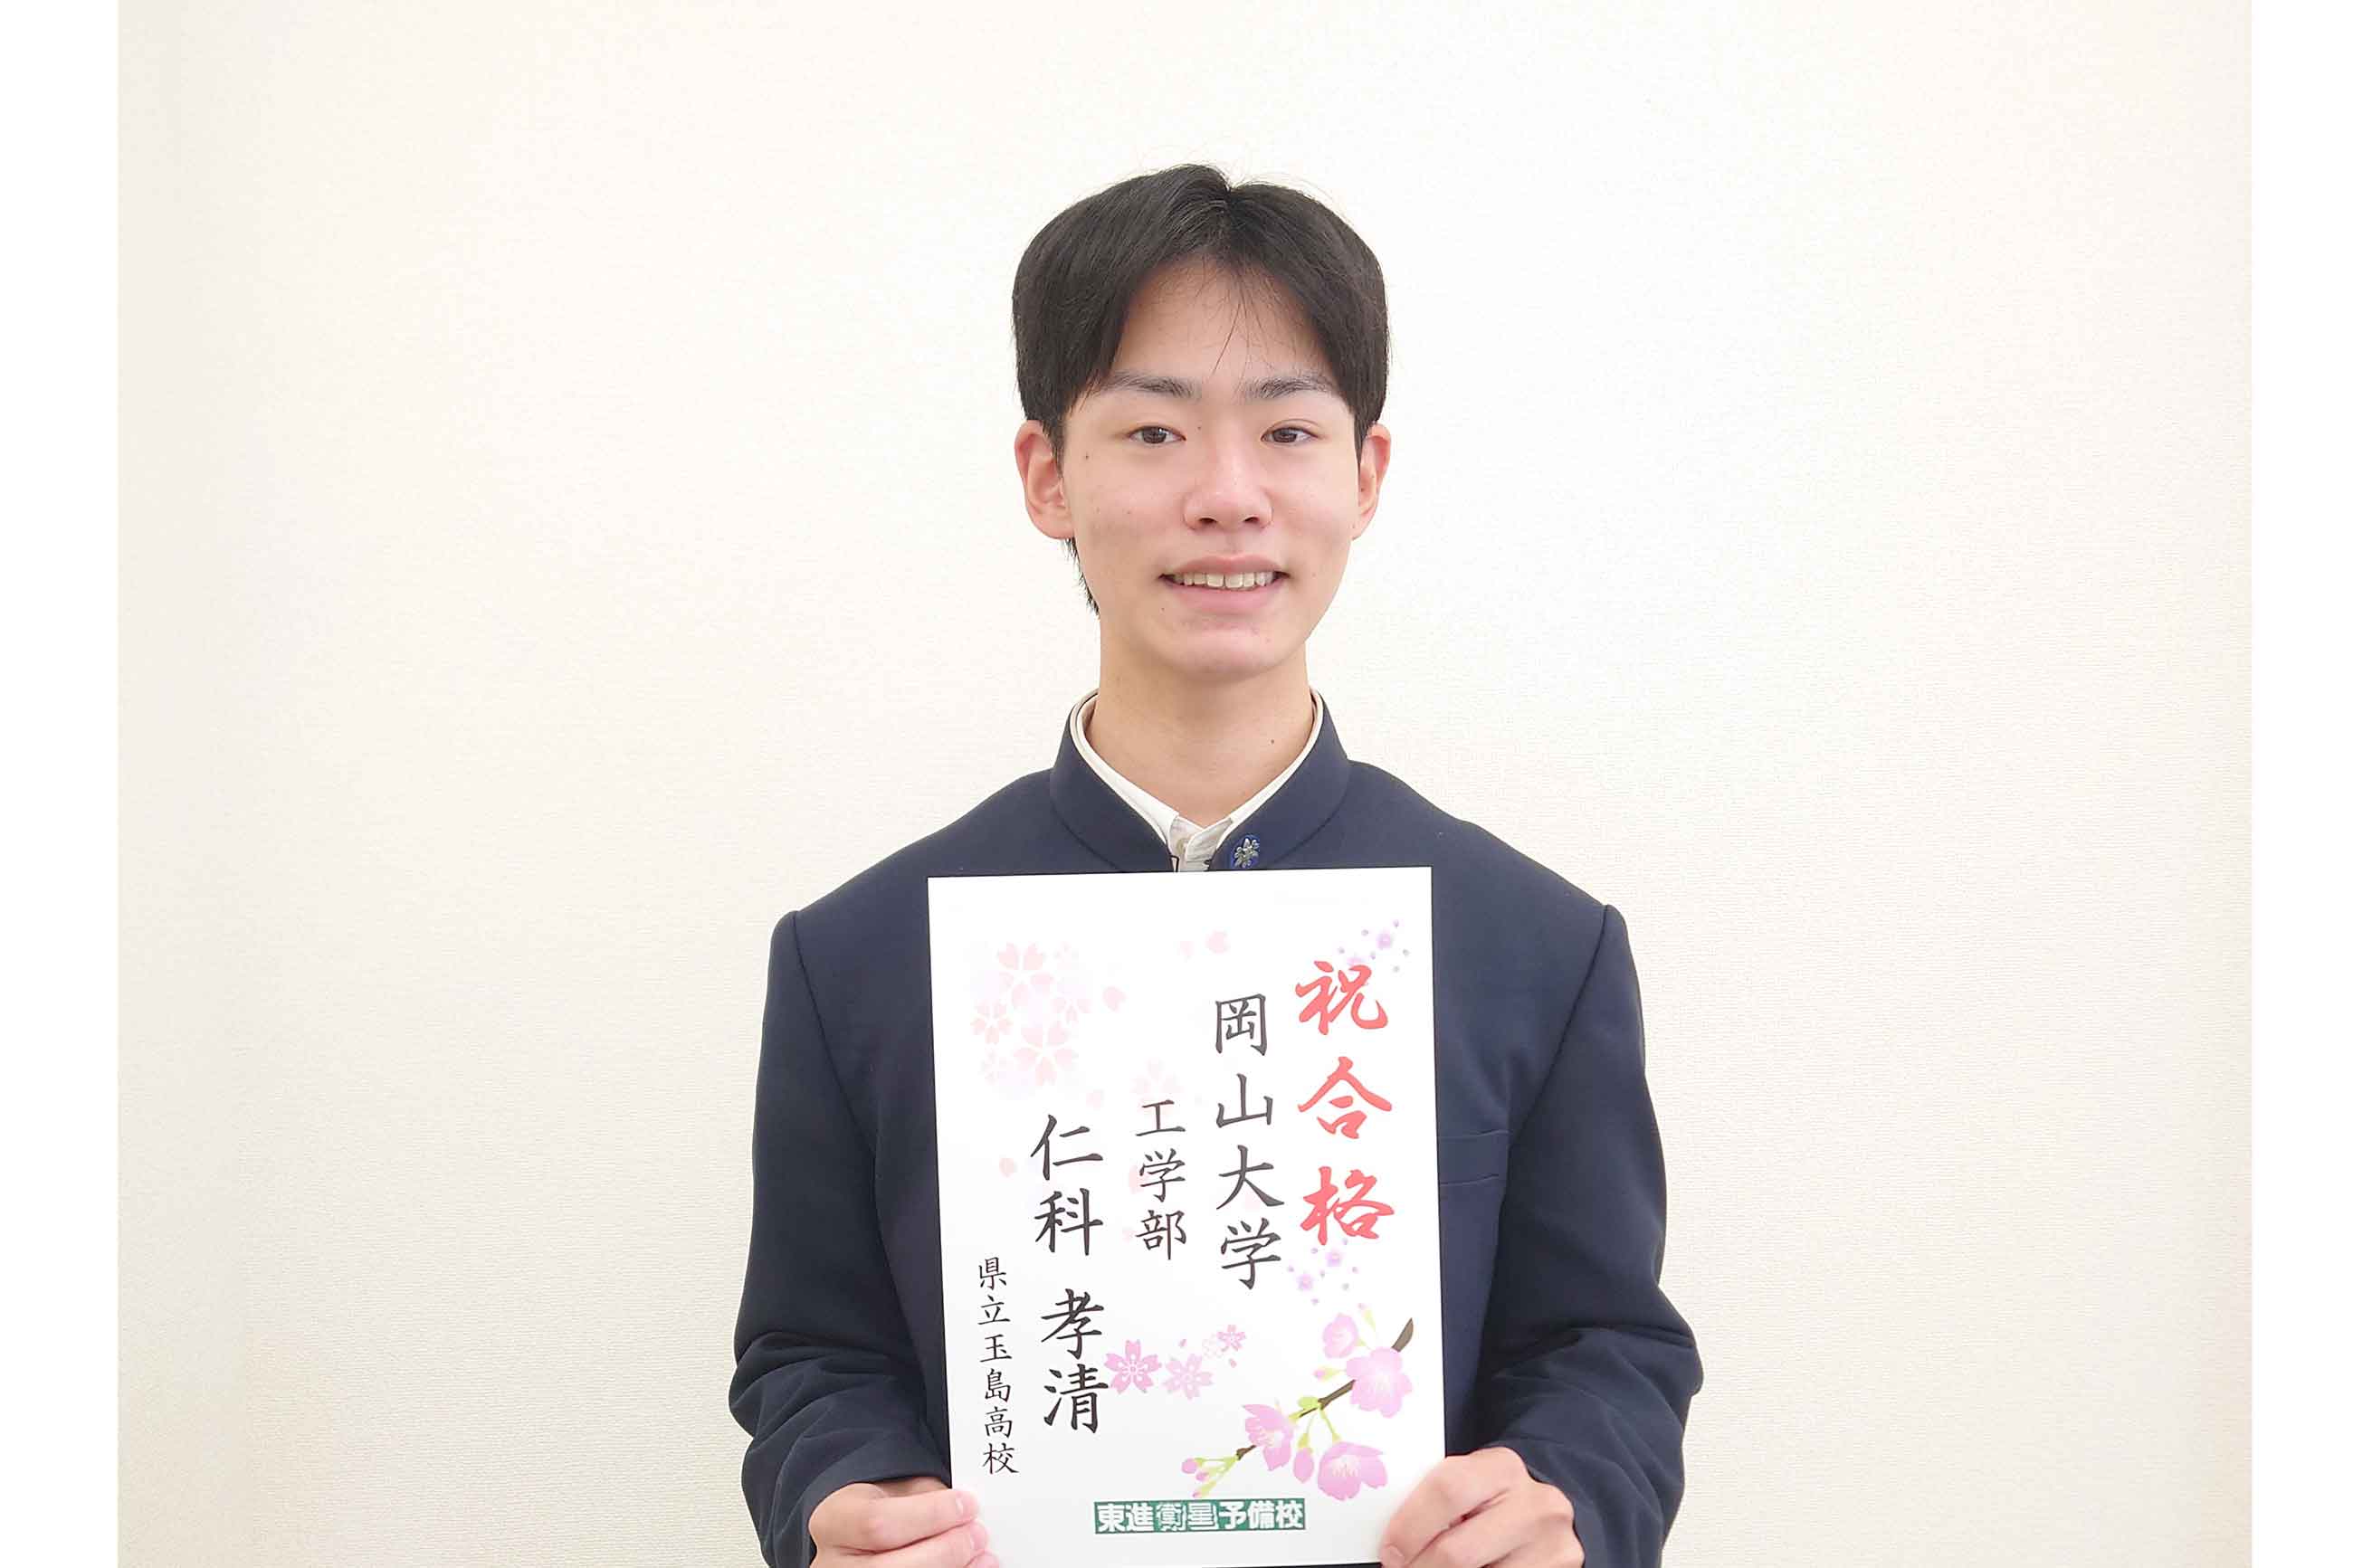 祝合格
岡山大学
工学部
仁科 孝清
県立玉島高校
東進衛星予備校